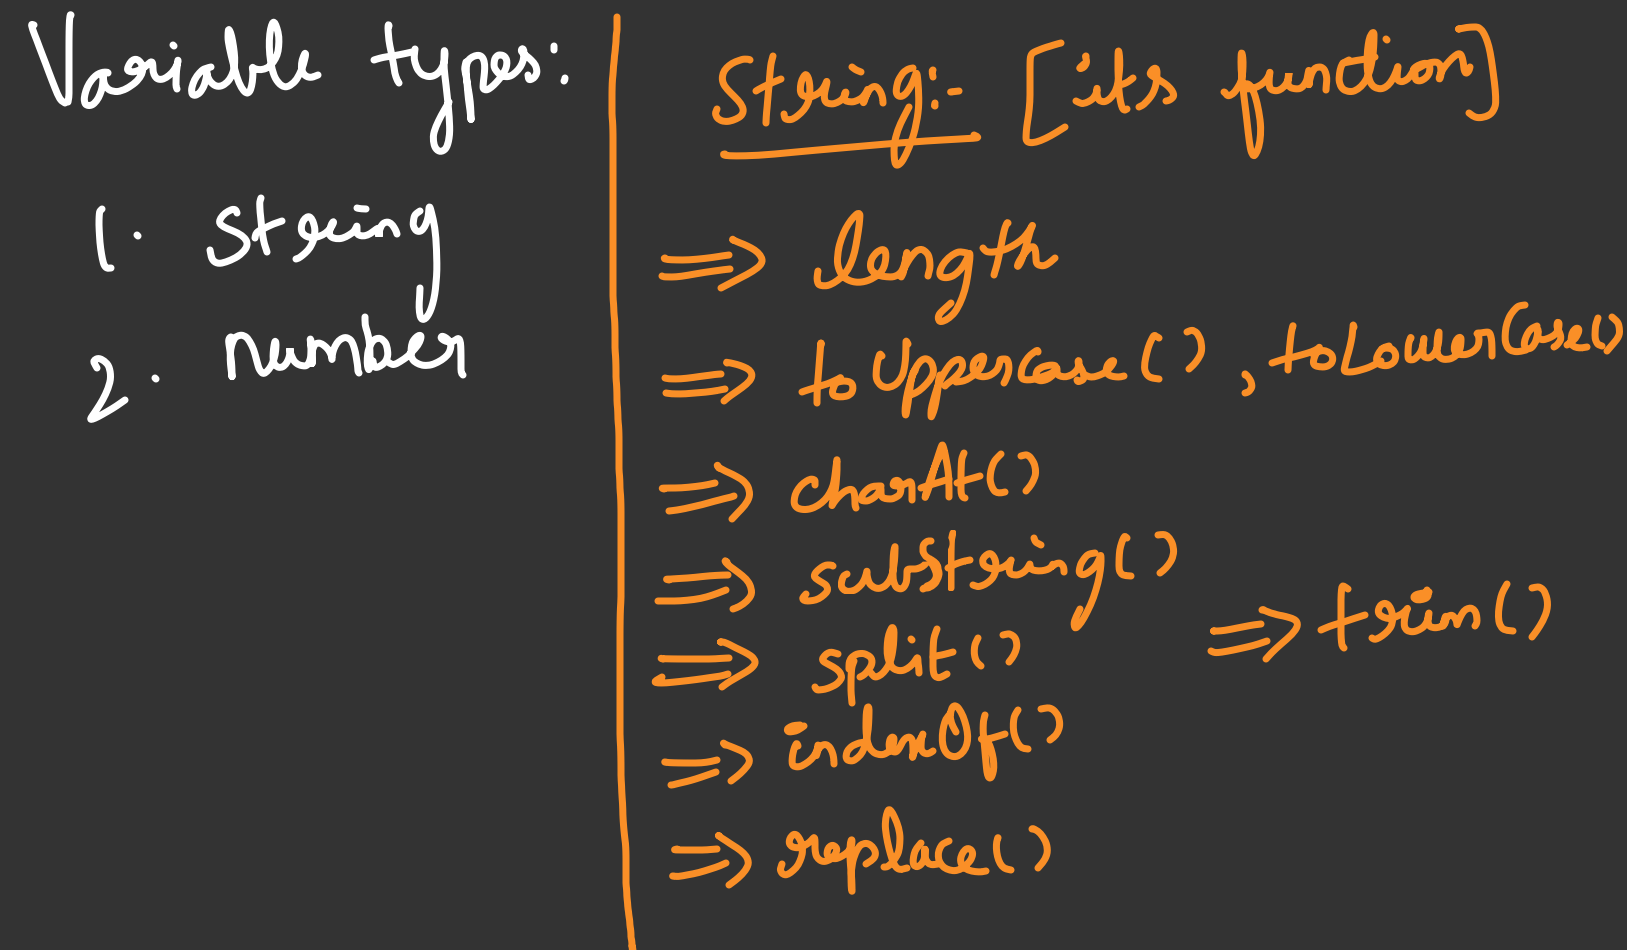 Variable types:
1. String
2. number
String:- [its function]
⇒ length
⇒ toUppercase() , toLowerCase()
⇒ charAt()
⇒ substring()
⇒ split()
⇒ trim()
⇒ indexOf()
⇒ replace()